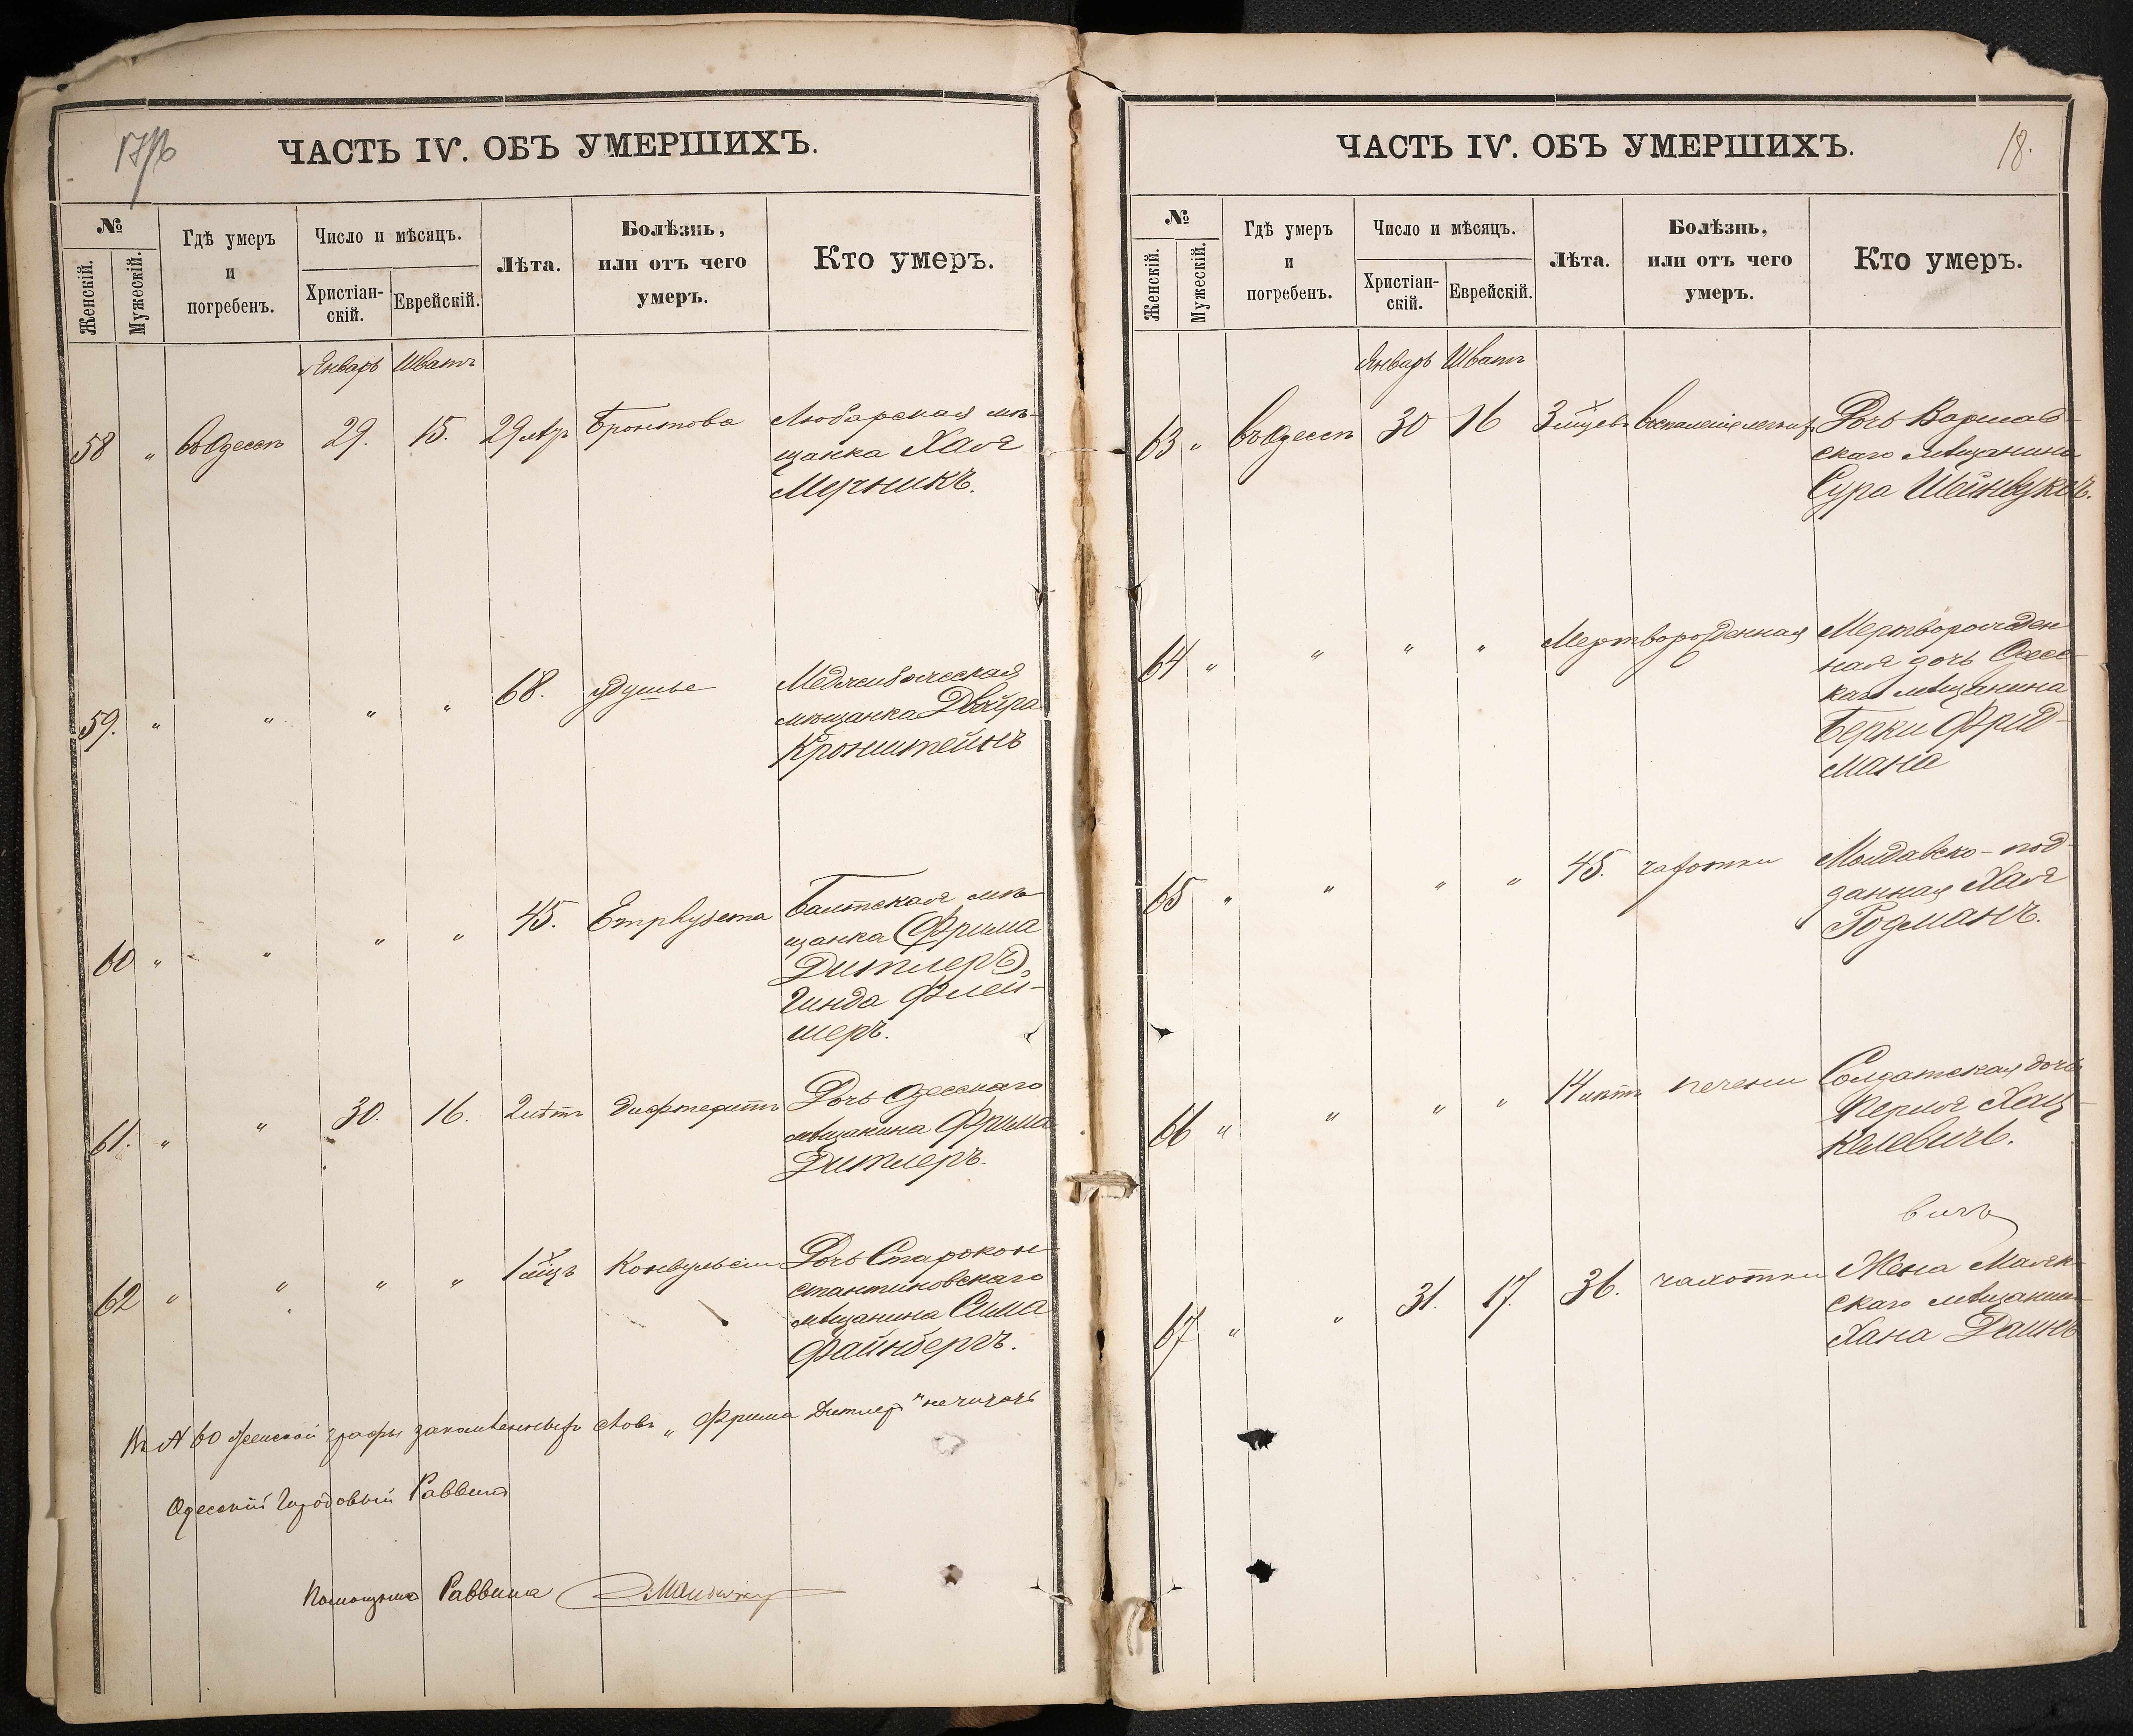 17/16
ЧАСТЬ IV. ОБЪ УМЕРШИХЪ.
№
Женскій.
Мужескій.
Гдѣ умеръ
и
погребенъ.
Число и мѣсяцъ.
Христіан-
скій.
Еврейскій.
Лѣта.
Болѣзнь,
или отъ чего
умеръ.
Кто умеръ.
Январь Шватъ
58 " въ Одессѣ 29. 15. 29 лѣтъ Любарская мѣ-
щанка Хая
Мерникъ.
59. " " " " 68. удушье Меджибожская
мѣщанка Двойра
Кронштейнъ
60 " " " " 45. Emphysema Балтская мѣ-
щанка (Фрима
Дитлеръ)
Гинда Флей-
шеръ.
61. " " 30. 16. 2 лѣтъ дифтеритъ Дочь Одесскаго
мѣщанина Фрима
Дитлеръ.
62 " " " " 1 мѣц Конвульсіи Дочь Старокон-
стантиновскаго
мѣщанина Сима
Файнбергъ.
Въ № 60 женской графы слов „Фрима Дитлер" не читать
Одесскій Городовый Раввинъ
Помощникъ Раввина
18.
ЧАСТЬ IV. ОБЪ УМЕРШИХЪ.
№
Женскій.
Мужескій.
Гдѣ умеръ
и
погребенъ.
Число и мѣсяцъ.
Христіан-
скій.
Еврейскій.
Лѣта.
Болѣзнь,
или отъ чего
умеръ.
Кто умеръ.
Январь Шватъ
63 " въ Одессѣ 30 16 3 мѣцевъ воспаленіе легкихъ Дочь Варшав-
скаго мѣщанина
Сура
64 " " " " Мертворожденная Мертворожден
ная дочь Одес-
каго мѣщанина
Берки Фрид-
мана
65 " " " " 45. чахотки Молдавско-под
данная Хая
Годманъ.
66 " " " " 14 лѣтъ печени Солдатская дочь
Перля Хац-
келевичъ.
вичъ
67 " " 31. 17. 36. чахотки Жена
скаго мѣщанина
Хана